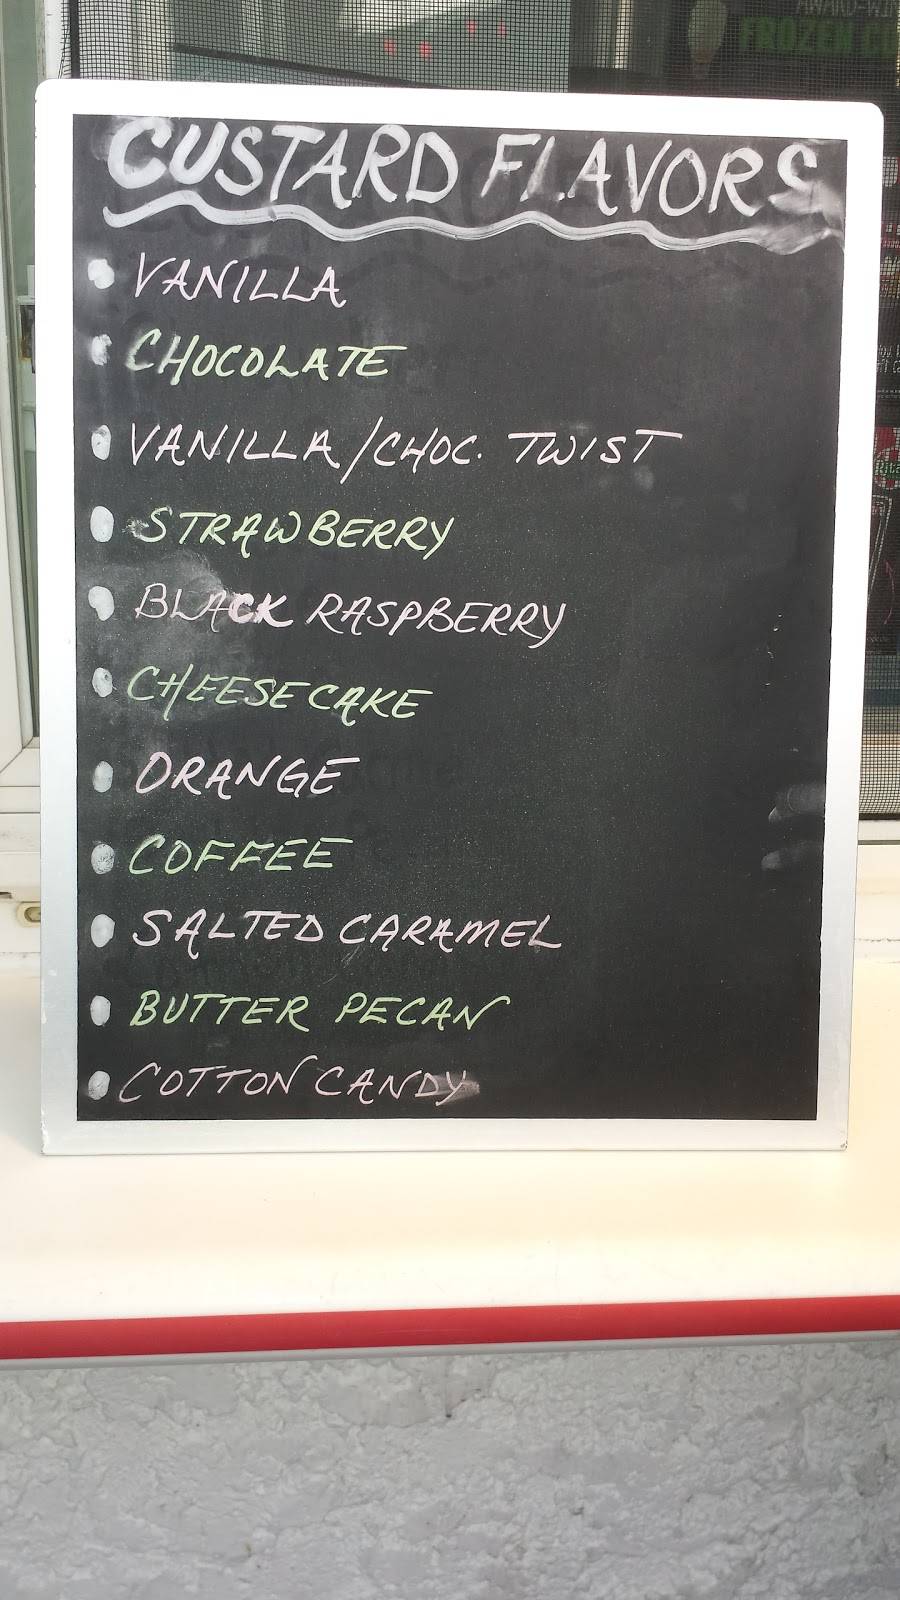 AWARD-WIN
FROZEN CU
CUSTARD FLAVORS
VANILLA
CHOCOLATE
VANILLA/CHOC. TWIST
STRAWBERRY
BLACK RASPBERRY
CHEESECAKE
ORANGE
COFFEE
SALTED CARAMEL
BUTTER PECAN
COTTON CANDY